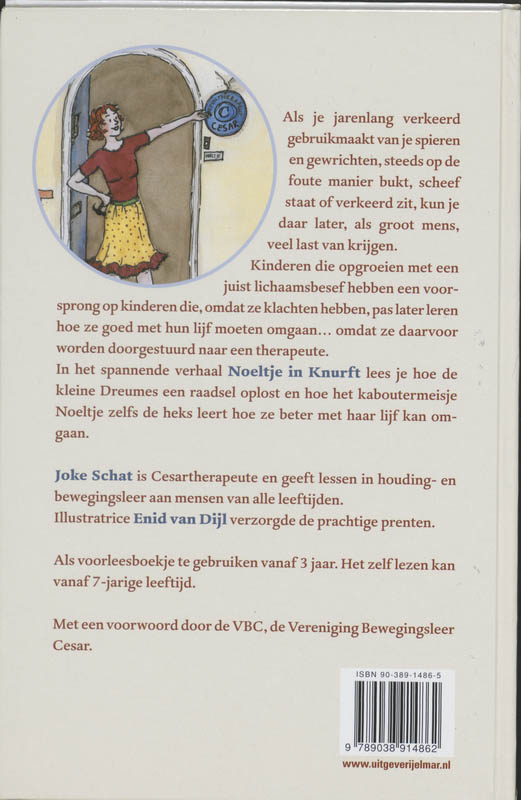 CESAR
Als je jarenlang verkeerd
gebruikmaakt van je spieren
en gewrichten, steeds op de
foute manier bukt, scheef
staat of verkeerd zit, kun je
daar later, als groot mens,
veel last van krijgen.
Kinderen die opgroeien met een
juist lichaamsbesef hebben een voor-
sprong op kinderen die, omdat ze klachten hebben, pas later leren
hoe ze goed met hun lijf moeten omgaan... omdat ze daarvoor
worden doorgestuurd naar een therapeute.
In het spannende verhaal Noeltje in Knurft lees je hoe de
kleine Dreumes een raadsel oplost en hoe het kaboutermeisje
Noeltje zelfs de heks leert hoe ze beter met haar lijf kan om-
gaan.
Joke Schat is Cesartherapeute en geeft lessen in houding- en
bewegingsleer aan mensen van alle leeftijden.
Illustratrice Enid van Dijl verzorgde de prachtige prenten.
Als voorleesboekje te gebruiken vanaf 3 jaar. Het zelf lezen kan
vanaf 7-jarige leeftijd.
Met een voorwoord door de VBC, de Vereniging Bewegingsleer
Cesar.
ISBN 90-389-1486-5
9 789038 914862
www.uitgeverijelmar.nl